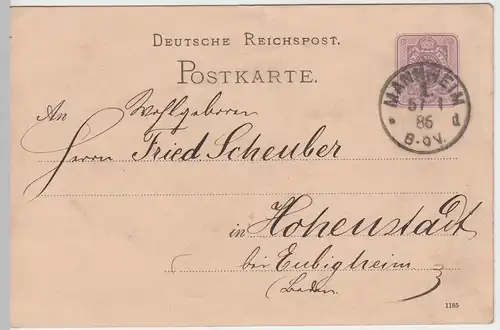 DEUTSCHE REICHSPOST.
POSTKARTE.
MANNHEIM
1
86
8-9V.
d
An Wohlgeboren
Herrn Fried Scheuber
in Hohenstadt
bei Eubigheim
Baden
1185